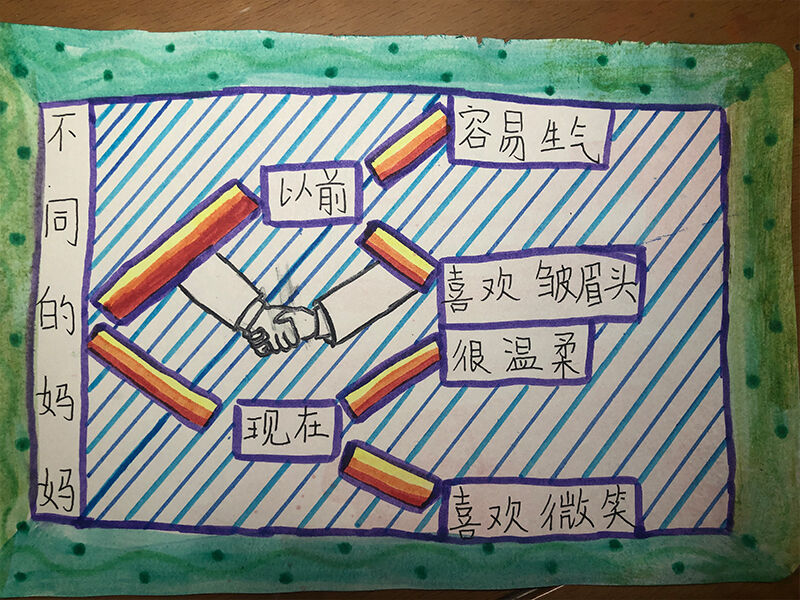 不同的妈妈
以前
容易生气
喜欢皱眉头
现在
很温柔
喜欢微笑